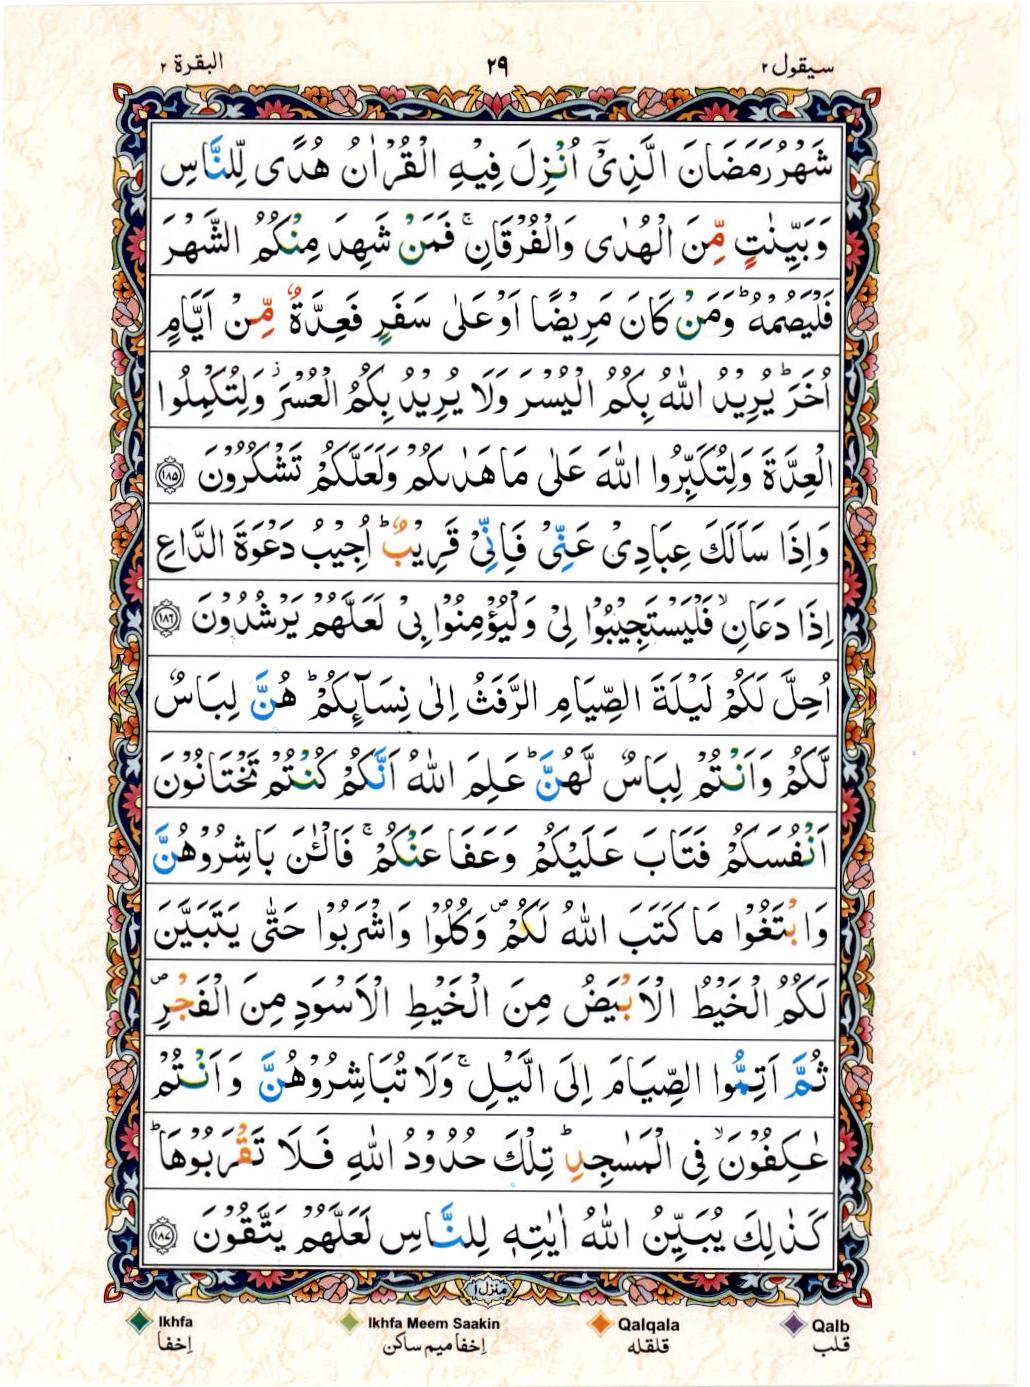 سيقول ٢ ٢٩ البقرة ٢
شَهْرُ رَمَضَانَ الَّذِيْٓ اُنْزِلَ فِيْهِ الْقُرْاٰنُ هُدًى لِّلنَّاسِ
وَبَيِّنٰتٍ مِّنَ الْهُدٰى وَالْفُرْقَانِ ۚ فَمَنْ شَهِدَ مِنْكُمُ الشَّهْرَ
فَلْيَصُمْهُ ؕ وَمَنْ كَانَ مَرِيْضًا اَوْ عَلٰى سَفَرٍ فَعِدَّةٌ مِّنْ اَيَّامٍ
اُخَرَ ؕ يُرِيْدُ اللّٰهُ بِكُمُ الْيُسْرَ وَلَا يُرِيْدُ بِكُمُ الْعُسْرَ ز وَلِتُكْمِلُوا
الْعِدَّةَ وَلِتُكَبِّرُوا اللّٰهَ عَلٰى مَا هَدٰىكُمْ وَلَعَلَّكُمْ تَشْكُرُوْنَ ١٨٥
وَاِذَا سَاَلَكَ عِبَادِيْ عَنِّيْ فَاِنِّيْ قَرِيْبٌ ؕ اُجِيْبُ دَعْوَةَ الدَّاعِ
اِذَا دَعَانِ ۙ فَلْيَسْتَجِيْبُوْا لِيْ وَلْيُؤْمِنُوْا بِيْ لَعَلَّهُمْ يَرْشُدُوْنَ ١٨٦
اُحِلَّ لَكُمْ لَيْلَةَ الصِّيَامِ الرَّفَثُ اِلٰى نِسَآئِكُمْ ؕ هُنَّ لِبَاسٌ
لَّكُمْ وَاَنْتُمْ لِبَاسٌ لَّهُنَّ ؕ عَلِمَ اللّٰهُ اَنَّكُمْ كُنْتُمْ تَخْتَانُوْنَ
اَنْفُسَكُمْ فَتَابَ عَلَيْكُمْ وَعَفَا عَنْكُمْ ۚ فَالْـٰٔنَ بَاشِرُوْهُنَّ
وَابْتَغُوْا مَا كَتَبَ اللّٰهُ لَكُمْ ص وَكُلُوْا وَاشْرَبُوْا حَتّٰى يَتَبَيَّنَ
لَكُمُ الْخَيْطُ الْاَبْيَضُ مِنَ الْخَيْطِ الْاَسْوَدِ مِنَ الْفَجْرِ ص
ثُمَّ اَتِمُّوا الصِّيَامَ اِلَى الَّيْلِ ۚ وَلَا تُبَاشِرُوْهُنَّ وَاَنْتُمْ
عٰكِفُوْنَ ۙ فِي الْمَسٰجِدِ ؕ تِلْكَ حُدُوْدُ اللّٰهِ فَلَا تَقْرَبُوْهَا ؕ
كَذٰلِكَ يُبَيِّنُ اللّٰهُ اٰيٰتِهٖ لِلنَّاسِ لَعَلَّهُمْ يَتَّقُوْنَ ١٨٧
منزل ١
Ikhfa Ikhfa Meem Saakin Qalqala Qalb
إخفا إخفا ميم ساكن قلقله قلب